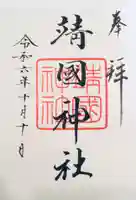 奉拝
靖國神社
靖國神社
令和六年十月十日